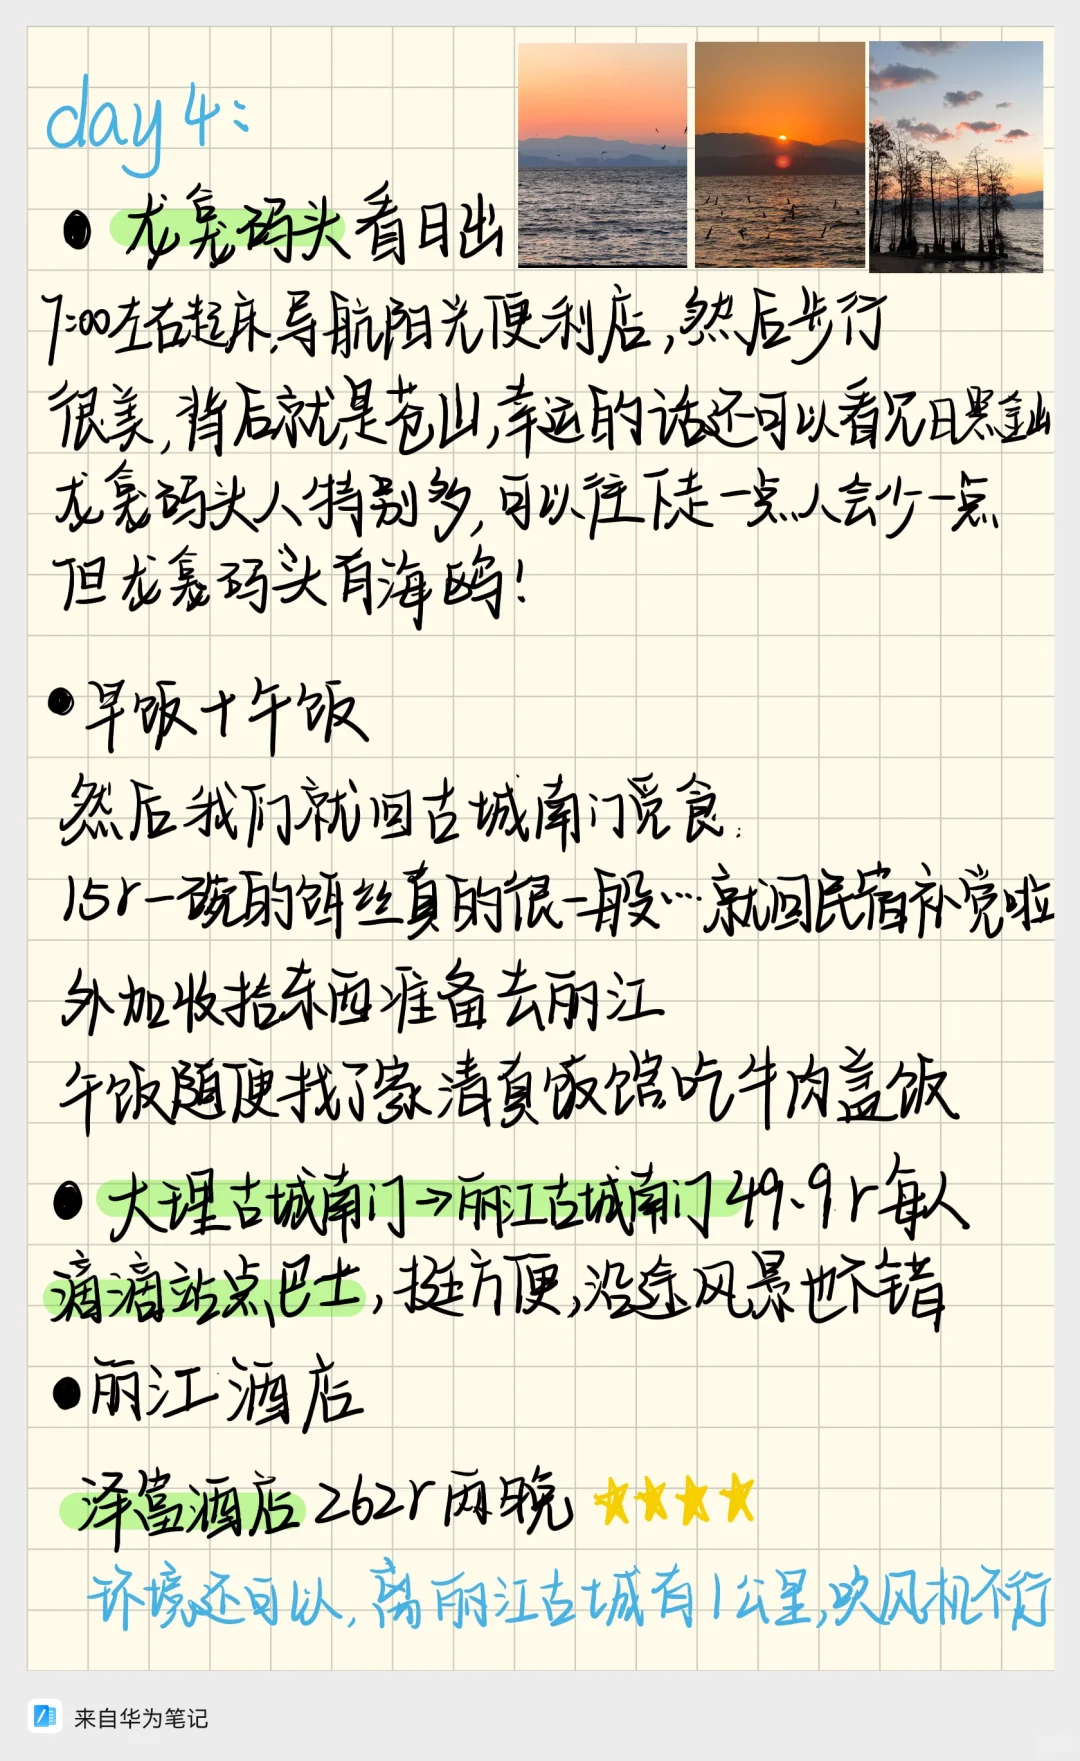 day 4:
● 龙龛码头看日出
7:00左右起床,导航阳光便利店,然后步行
很美,背后就是苍山,幸运的话还可以看见日照金山
龙龛码头人特别多,可以往下走一点人会少一点
但龙龛码头有海鸥!
● 早饭+午饭
然后我们就回古城南门觅食.
15r一碗的饵丝真的很一般…就回民宿补觉啦
外加收拾东西准备去丽江
午饭随便找了家清真饭馆吃牛肉盖饭
● 大理古城南门→丽江古城南门 49.9r每人
滴滴站点巴士,挺方便,沿途风景也不错
● 丽江酒店
泽富酒店 262r两晚
环境还可以,离丽江古城有1公里,吹风机不行
来自华为笔记